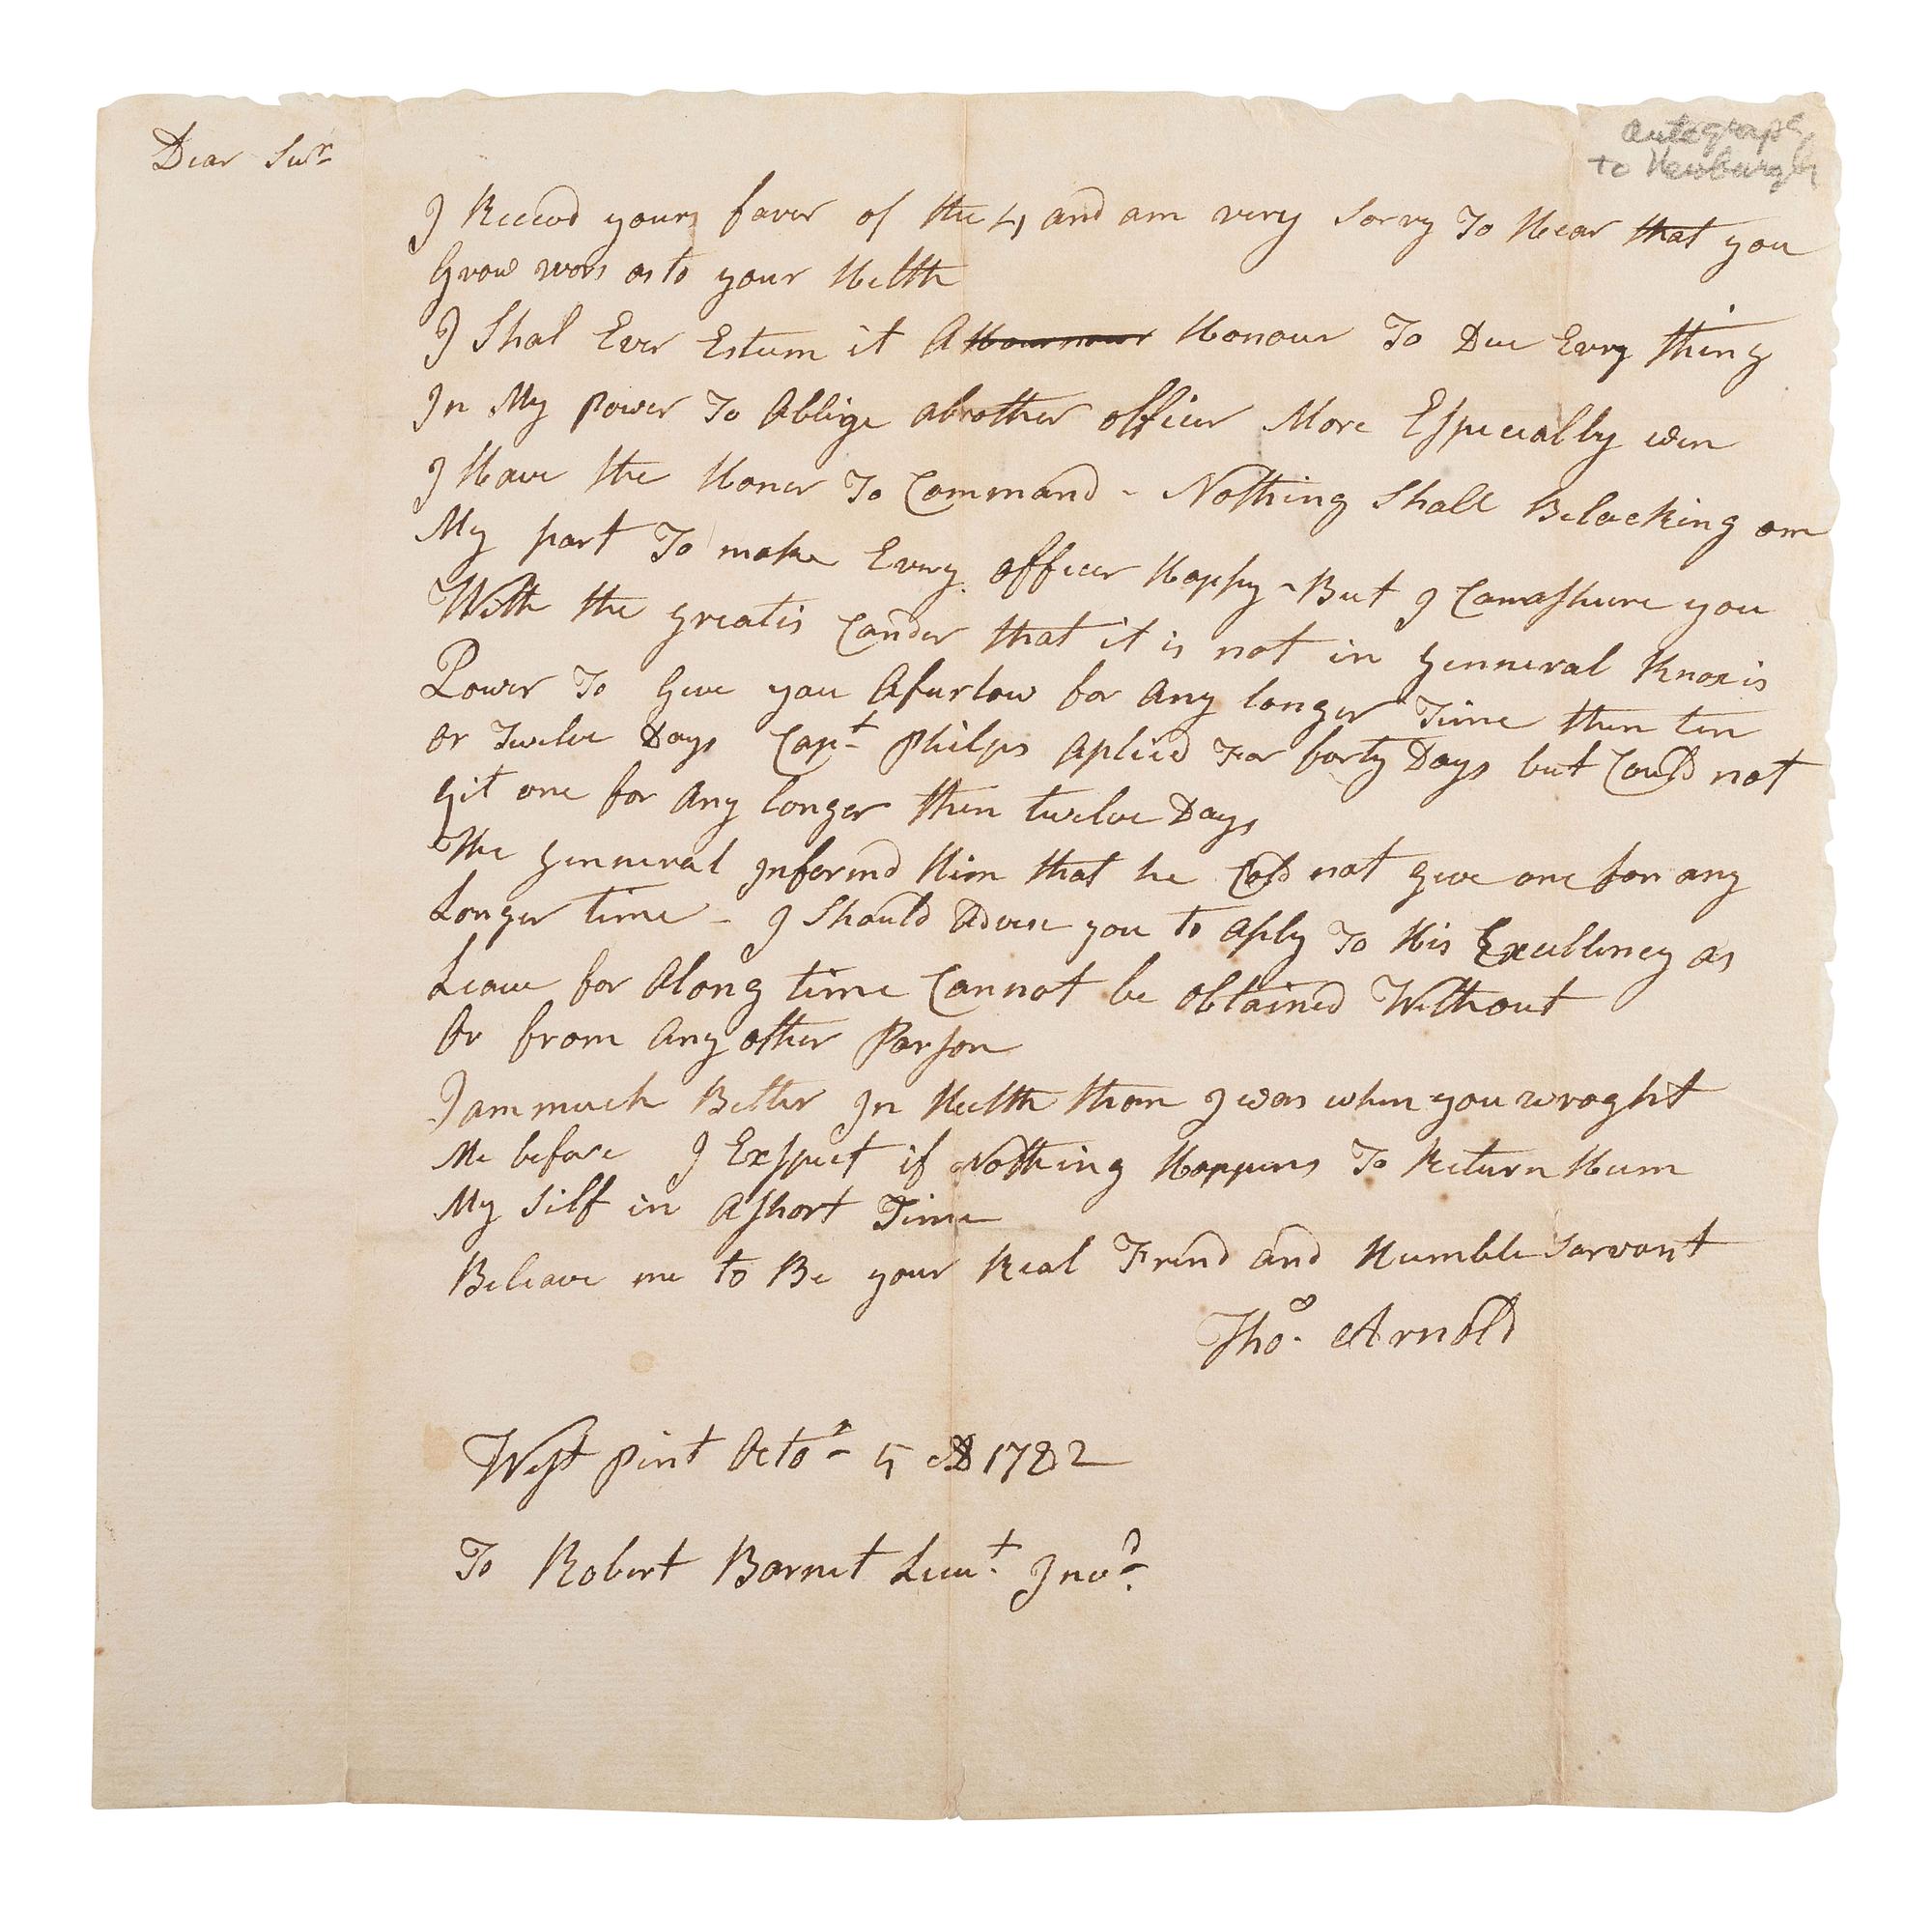 Dear Sur
autograph
to Newburgh
I Receivd yours faver of the 4 and am very Sorry To Hear that you
Grow wors as to your Helth
I Shal Ever Esteem it A Honour To Due Every thing
In My Power To Ablige abrother officer More Especially wen
I Have the Honer To Command - Nothing Shall Belacking on
My part To make Every officer Happy - But I Canashure you
With the greatis Cander that it is not in Genneral Knoxis
Power To Give you Afurlow for Any longer Time then ten
or Twelve Days Capt Philps Aplied For forty Days but Could not
git one for Any longer then twelve Days
The Genneral Informd Him that he Cold not give one for any
Longer time - I Should Advise you to Aply To His Excellency as
Leave for Along time Cannot be obtained Without
Or from Any other Parson
I am much Better In Helth than I was when you wroght
Me before I Exspect if Nothing Happens To Return Hum
My Silf in Ashort Time
Beleave me to Be your Real Frend and Humble Sarvant
Thos. Arnold
West Pint Octor 5 AD 1782
To Robert Barnet Lieut. Invd.